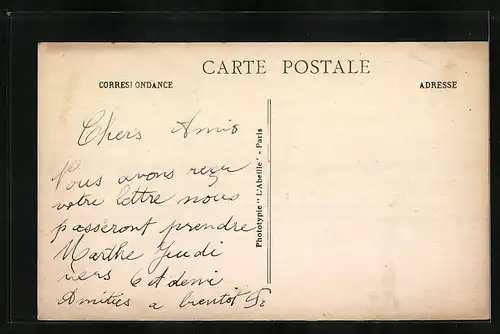 CARTE POSTALE
CORRESPONDANCE
ADRESSE
Chers Amis
Nous avons reçu
votre lettre nous
passeront prendre
Marthe Jeudi
vers 6 et demi
Amitiés a bientot
Phototypie "L'Abeille" - Paris